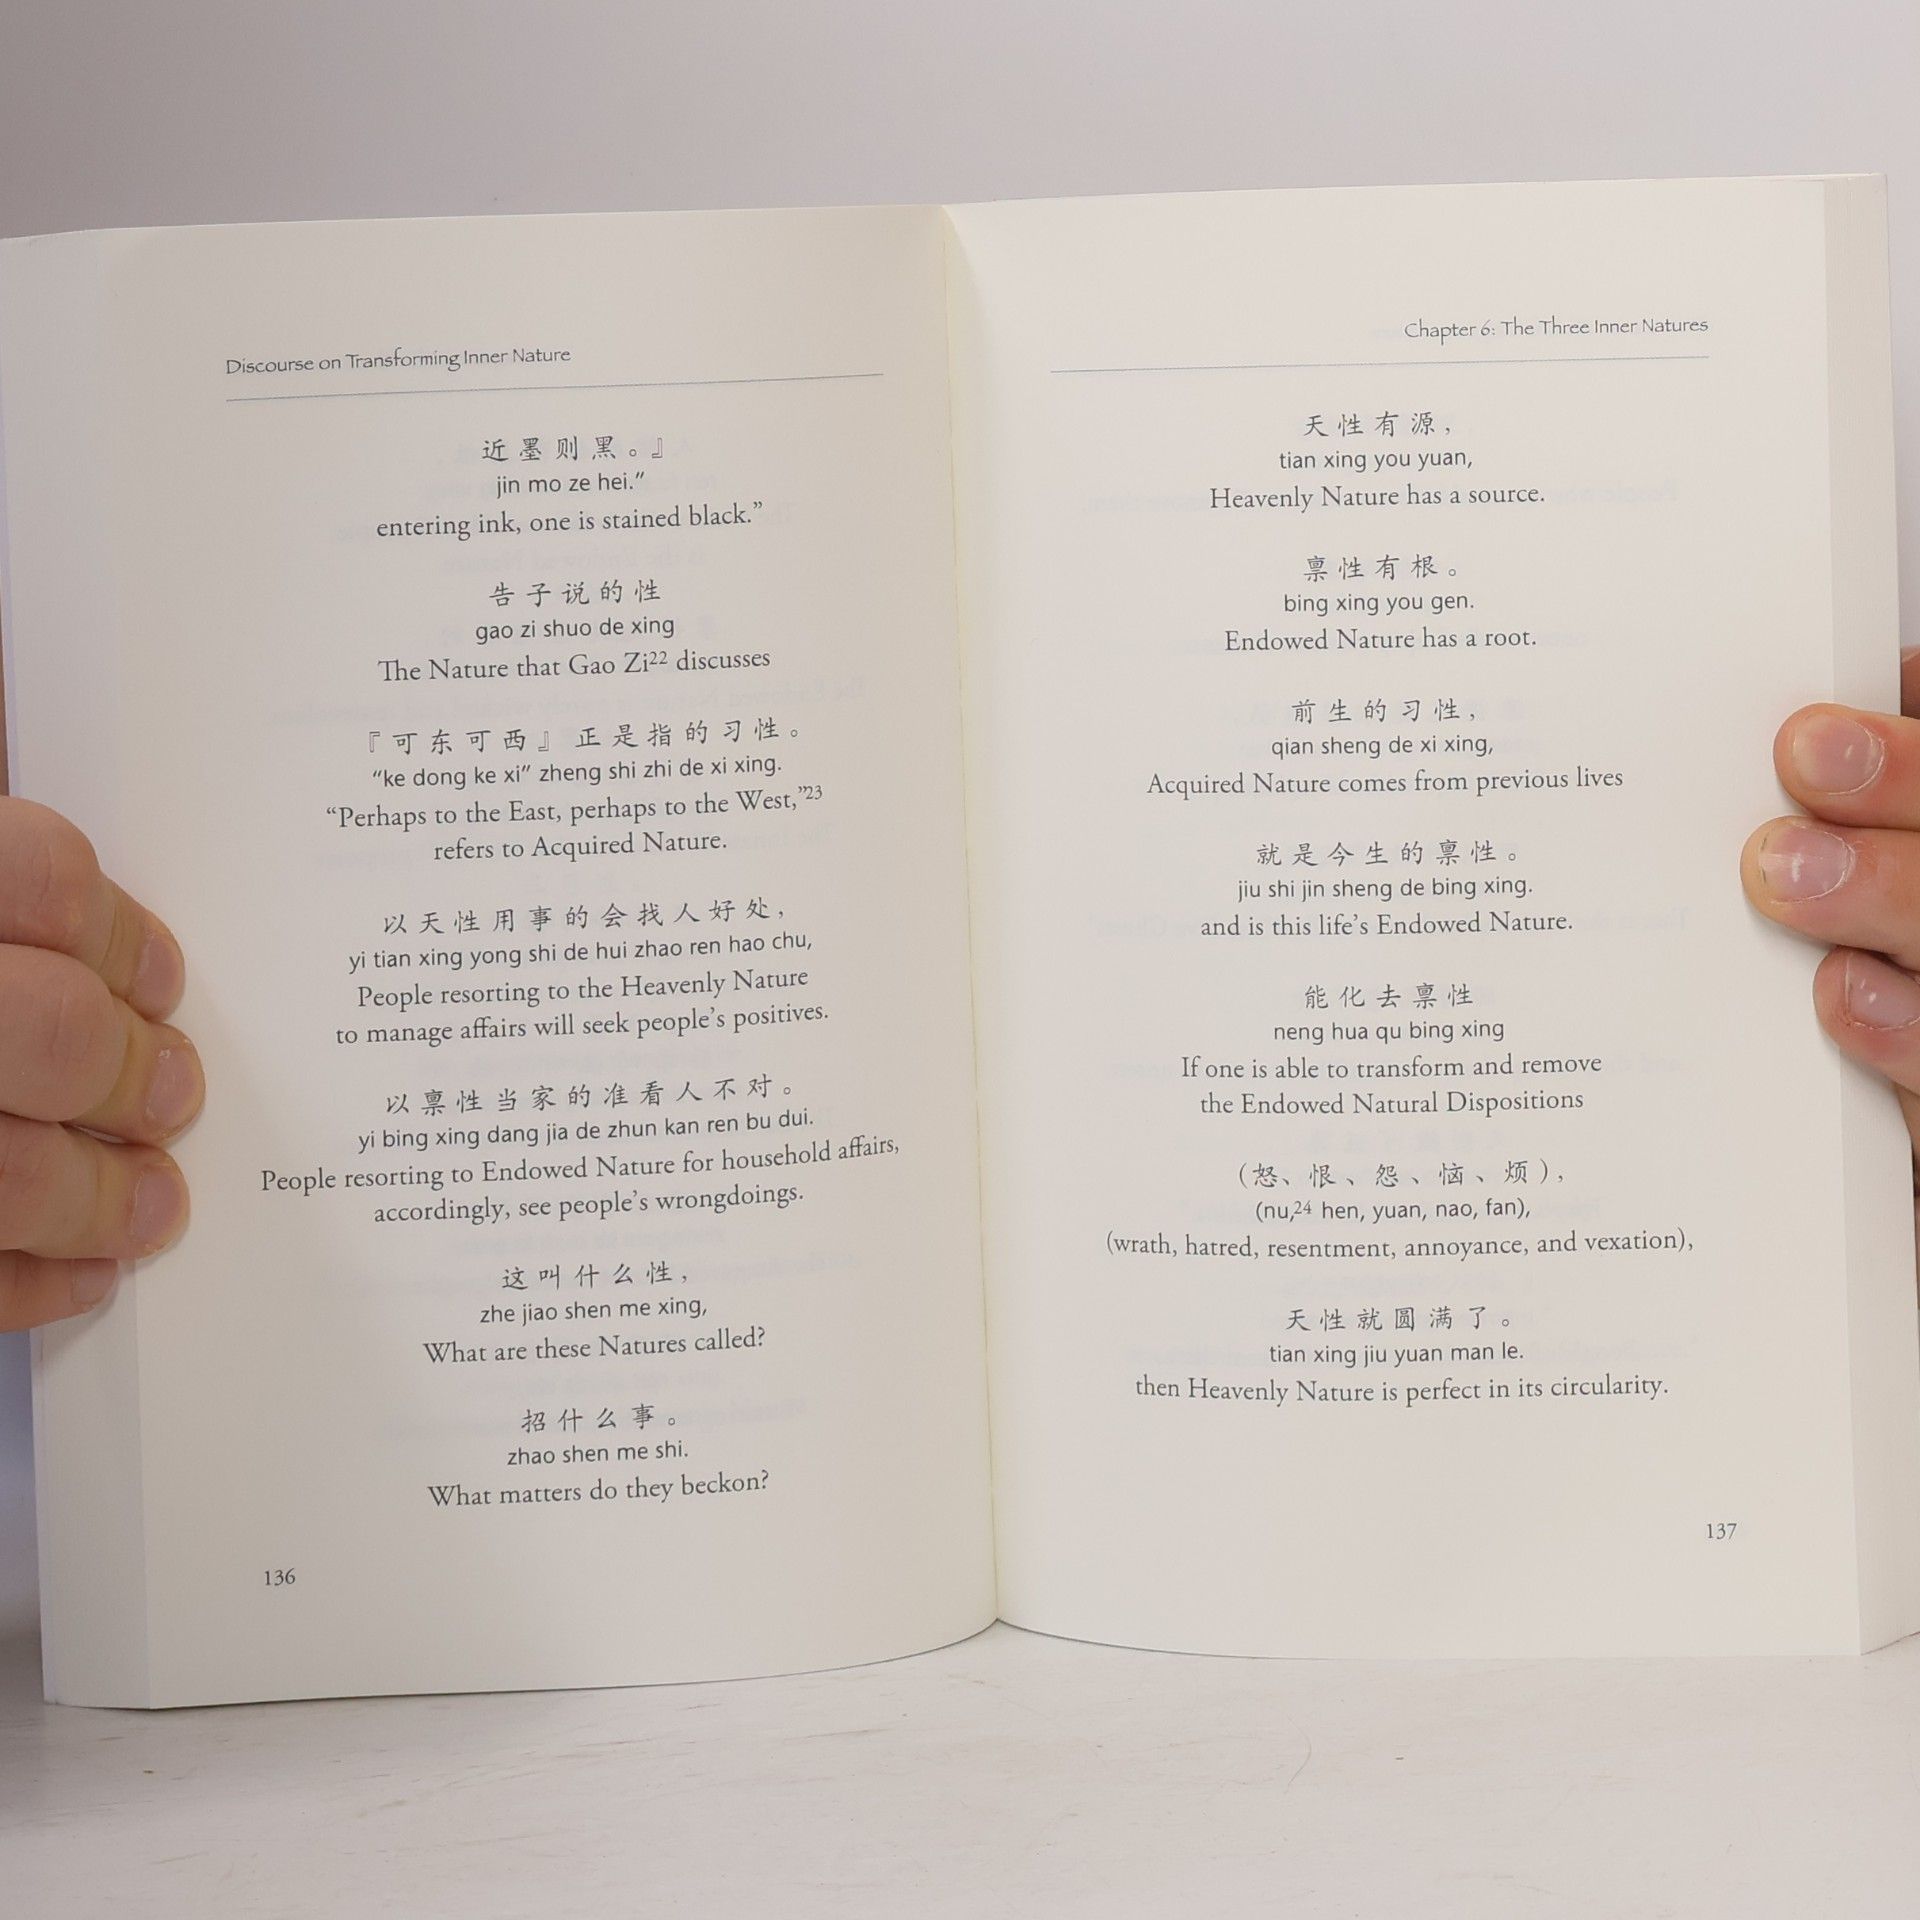 Discourse on Transforming Inner Nature
近墨则黑。』
jin mo ze hei.”
entering ink, one is stained black.”
告子说的性
gao zi shuo de xing
The Nature that Gao Zi22 discusses
『可东可西』正是指的习性。
“ke dong ke xi” zheng shi zhi de xi xing.
“Perhaps to the East, perhaps to the West,”23
refers to Acquired Nature.
以天性用事的会找人好处，
yi tian xing yong shi de hui zhao ren hao chu,
People resorting to the Heavenly Nature
to manage affairs will seek people’s positives.
以禀性当家的准看人不对。
yi bing xing dang jia de zhun kan ren bu dui.
People resorting to Endowed Nature for household affairs,
accordingly, see people’s wrongdoings.
这叫什么性，
zhe jiao shen me xing,
What are these Natures called?
招什么事。
zhao shen me shi.
What matters do they beckon?
136
Chapter 6: The Three Inner Natures
天性有源，
tian xing you yuan,
Heavenly Nature has a source.
禀性有根。
bing xing you gen.
Endowed Nature has a root.
前生的习性，
qian sheng de xi xing,
Acquired Nature comes from previous lives
就是今生的禀性。
jiu shi jin sheng de bing xing.
and is this life’s Endowed Nature.
能化去禀性
neng hua qu bing xing
If one is able to transform and remove
the Endowed Natural Dispositions
（怒、恨、怨、恼、烦），
(nu,24 hen, yuan, nao, fan),
(wrath, hatred, resentment, annoyance, and vexation),
天性就圆满了。
tian xing jiu yuan man le.
then Heavenly Nature is perfect in its circularity.
137